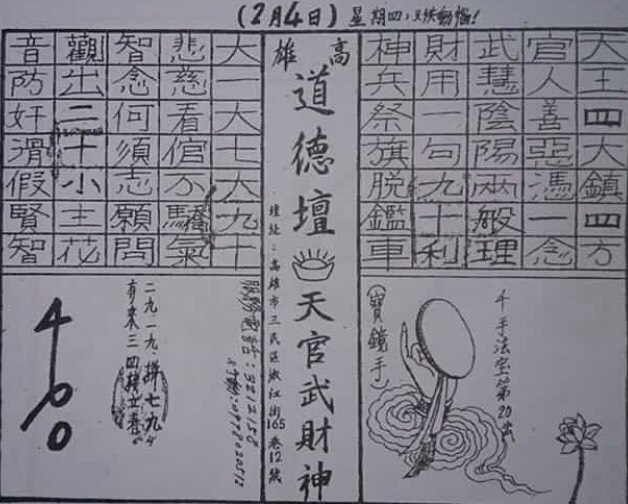 (2月4日)
星期四
天王四大鎮四方
官人善惡憑一念
武慧陰陽兩般理
財用一句九十利
神兵祭旗脫鑑車
高雄
道德壇 天官武財神
壇址：高雄市三民區淑江街165巷12號
大一大七六九十
悲慈看倌不驕氣
智念何須志願問
觀出二十小主花
音防奸滑假賢智
千手法宝第20出
(寶鏡手)
服務電話：3212158
二九一九、拼七九
有來三四
400